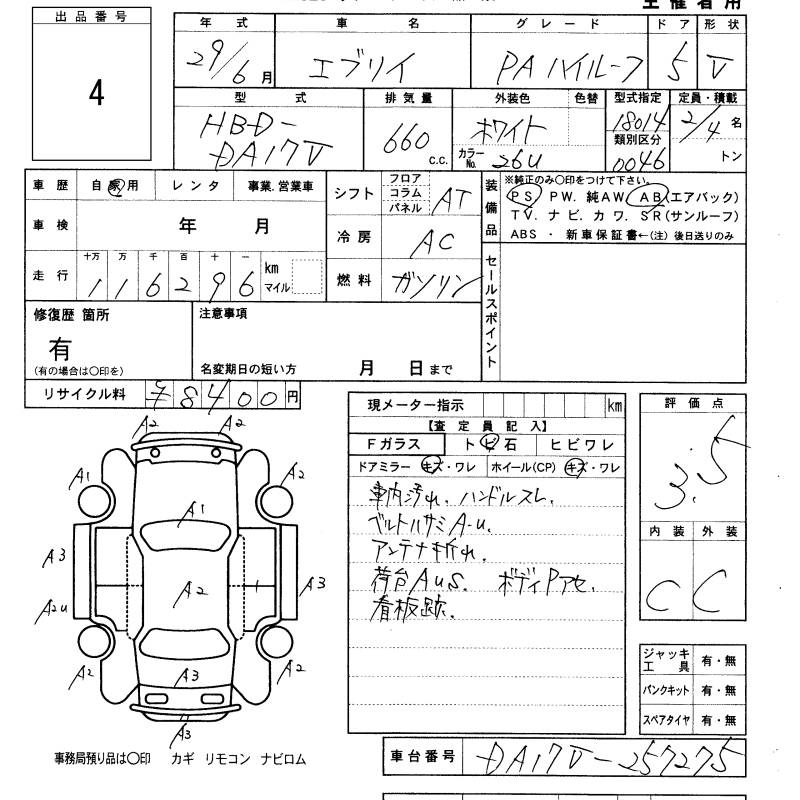 主催者用
出品番号
4
年式 車名 グレード ドア 形状
29/6月 エブリイ PAハイルーフ 5 V
型式 排気量 外装色 色替 型式指定 定員・積載
HBD-
DA17V
660 c.c.
ホワイト
カラーNo. 26U
18014
類別区分
0046
2/4 名
トン
車歴 自家用 レンタ 事業.営業車
車検 年 月
走行 十万 万 千 百 十 一
116296 km マイル
シフト フロア コラム パネル AT
冷房 AC
燃料 ガソリン
装備品 ※純正のみ○印をつけて下さい。
PS PW. 純AW AB(エアバック)
TV. ナビ. カワ. SR(サンルーフ)
ABS ・ 新車保証書←(注) 後日送りのみ
セールスポイント
修復歴 箇所
有
(有の場合は○印を)
注意事項
名変期日の短い方 月 日まで
リサイクル料 ¥8400円
現メーター指示 km
【査定員記入】
Fガラス トビ石 ヒビワレ
ドアミラー キズ・ワレ ホイール(CP) キズ・ワレ
車内汚れ. ハンドルスレ.
ベルトハサミA-u.
アンテナ折れ.
荷台Aus. ボディPアセ.
看板跡.
評価点
3.5
内装 外装
C C
ジャッキ工具 有・無
パンクキット 有・無
スペアタイヤ 有・無
A2 A2
A1 A2
A1
A3 A2 A3
A2u
A2 A3 A2
A3
事務局預り品は○印 カギ リモコン ナビロム
車台番号 DA17V-257275